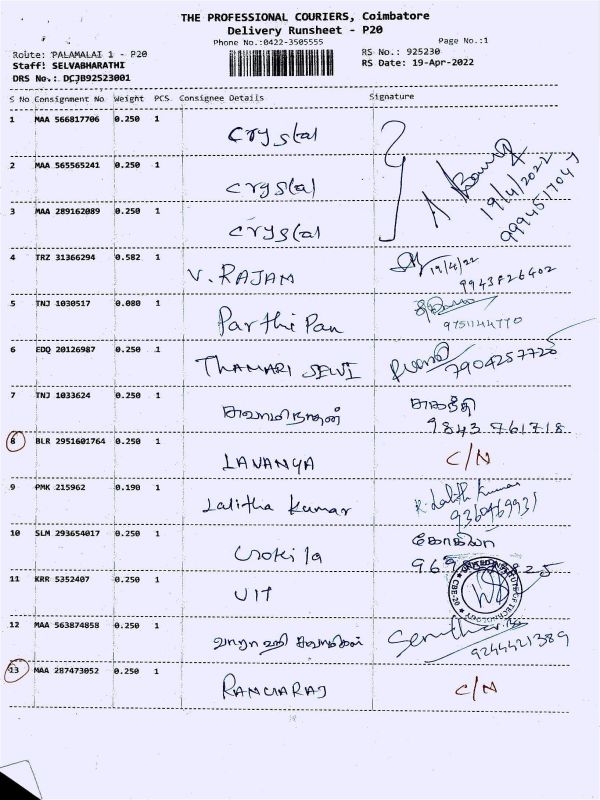 THE PROFESSIONAL COURIERS, Coimbatore
Delivery Runsheet - P20
Phone No.:0422-3505555
Page No.:1
Route: PALAMALAI 1 - P20
RS No.: 925230
Staff: SELVABHARATHI
RS Date: 19-Apr-2022
DRS No.: DCJB92523001
S No Consignment No Weight PCS Consignee Details Signature
1 MAA 566817706 0.250 1 Crystal
2 MAA 565565241 0.250 1 Crystal
19/4/2022
3 MAA 289162089 0.250 1 Crystal
4 TRZ 31366294 0.582 1 V. RAJAM 19/4/22
9943826402
5 TNJ 1030517 0.080 1 Parthi Pan
9751144770
6 EDQ 20126987 0.250 1 THAMARI SELVI
7904257726
7 TNJ 1033624 0.250 1 சுவாமிநாதன் சுகந்தி
9843 761718
8 BLR 2951601764 0.250 1 LAVANYA C/N
9 PMK 215962 0.190 1 Lalitha Kumar R. Lalith Kumar
9360469931
10 SLM 293654017 0.250 1 Gokila கோகிலா
11 KRR 5352407 0.250 1 UIT
12 MAA 563874858 0.250 1
9244421389
13 MAA 287473052 0.250 1 RANGARAJ C/N